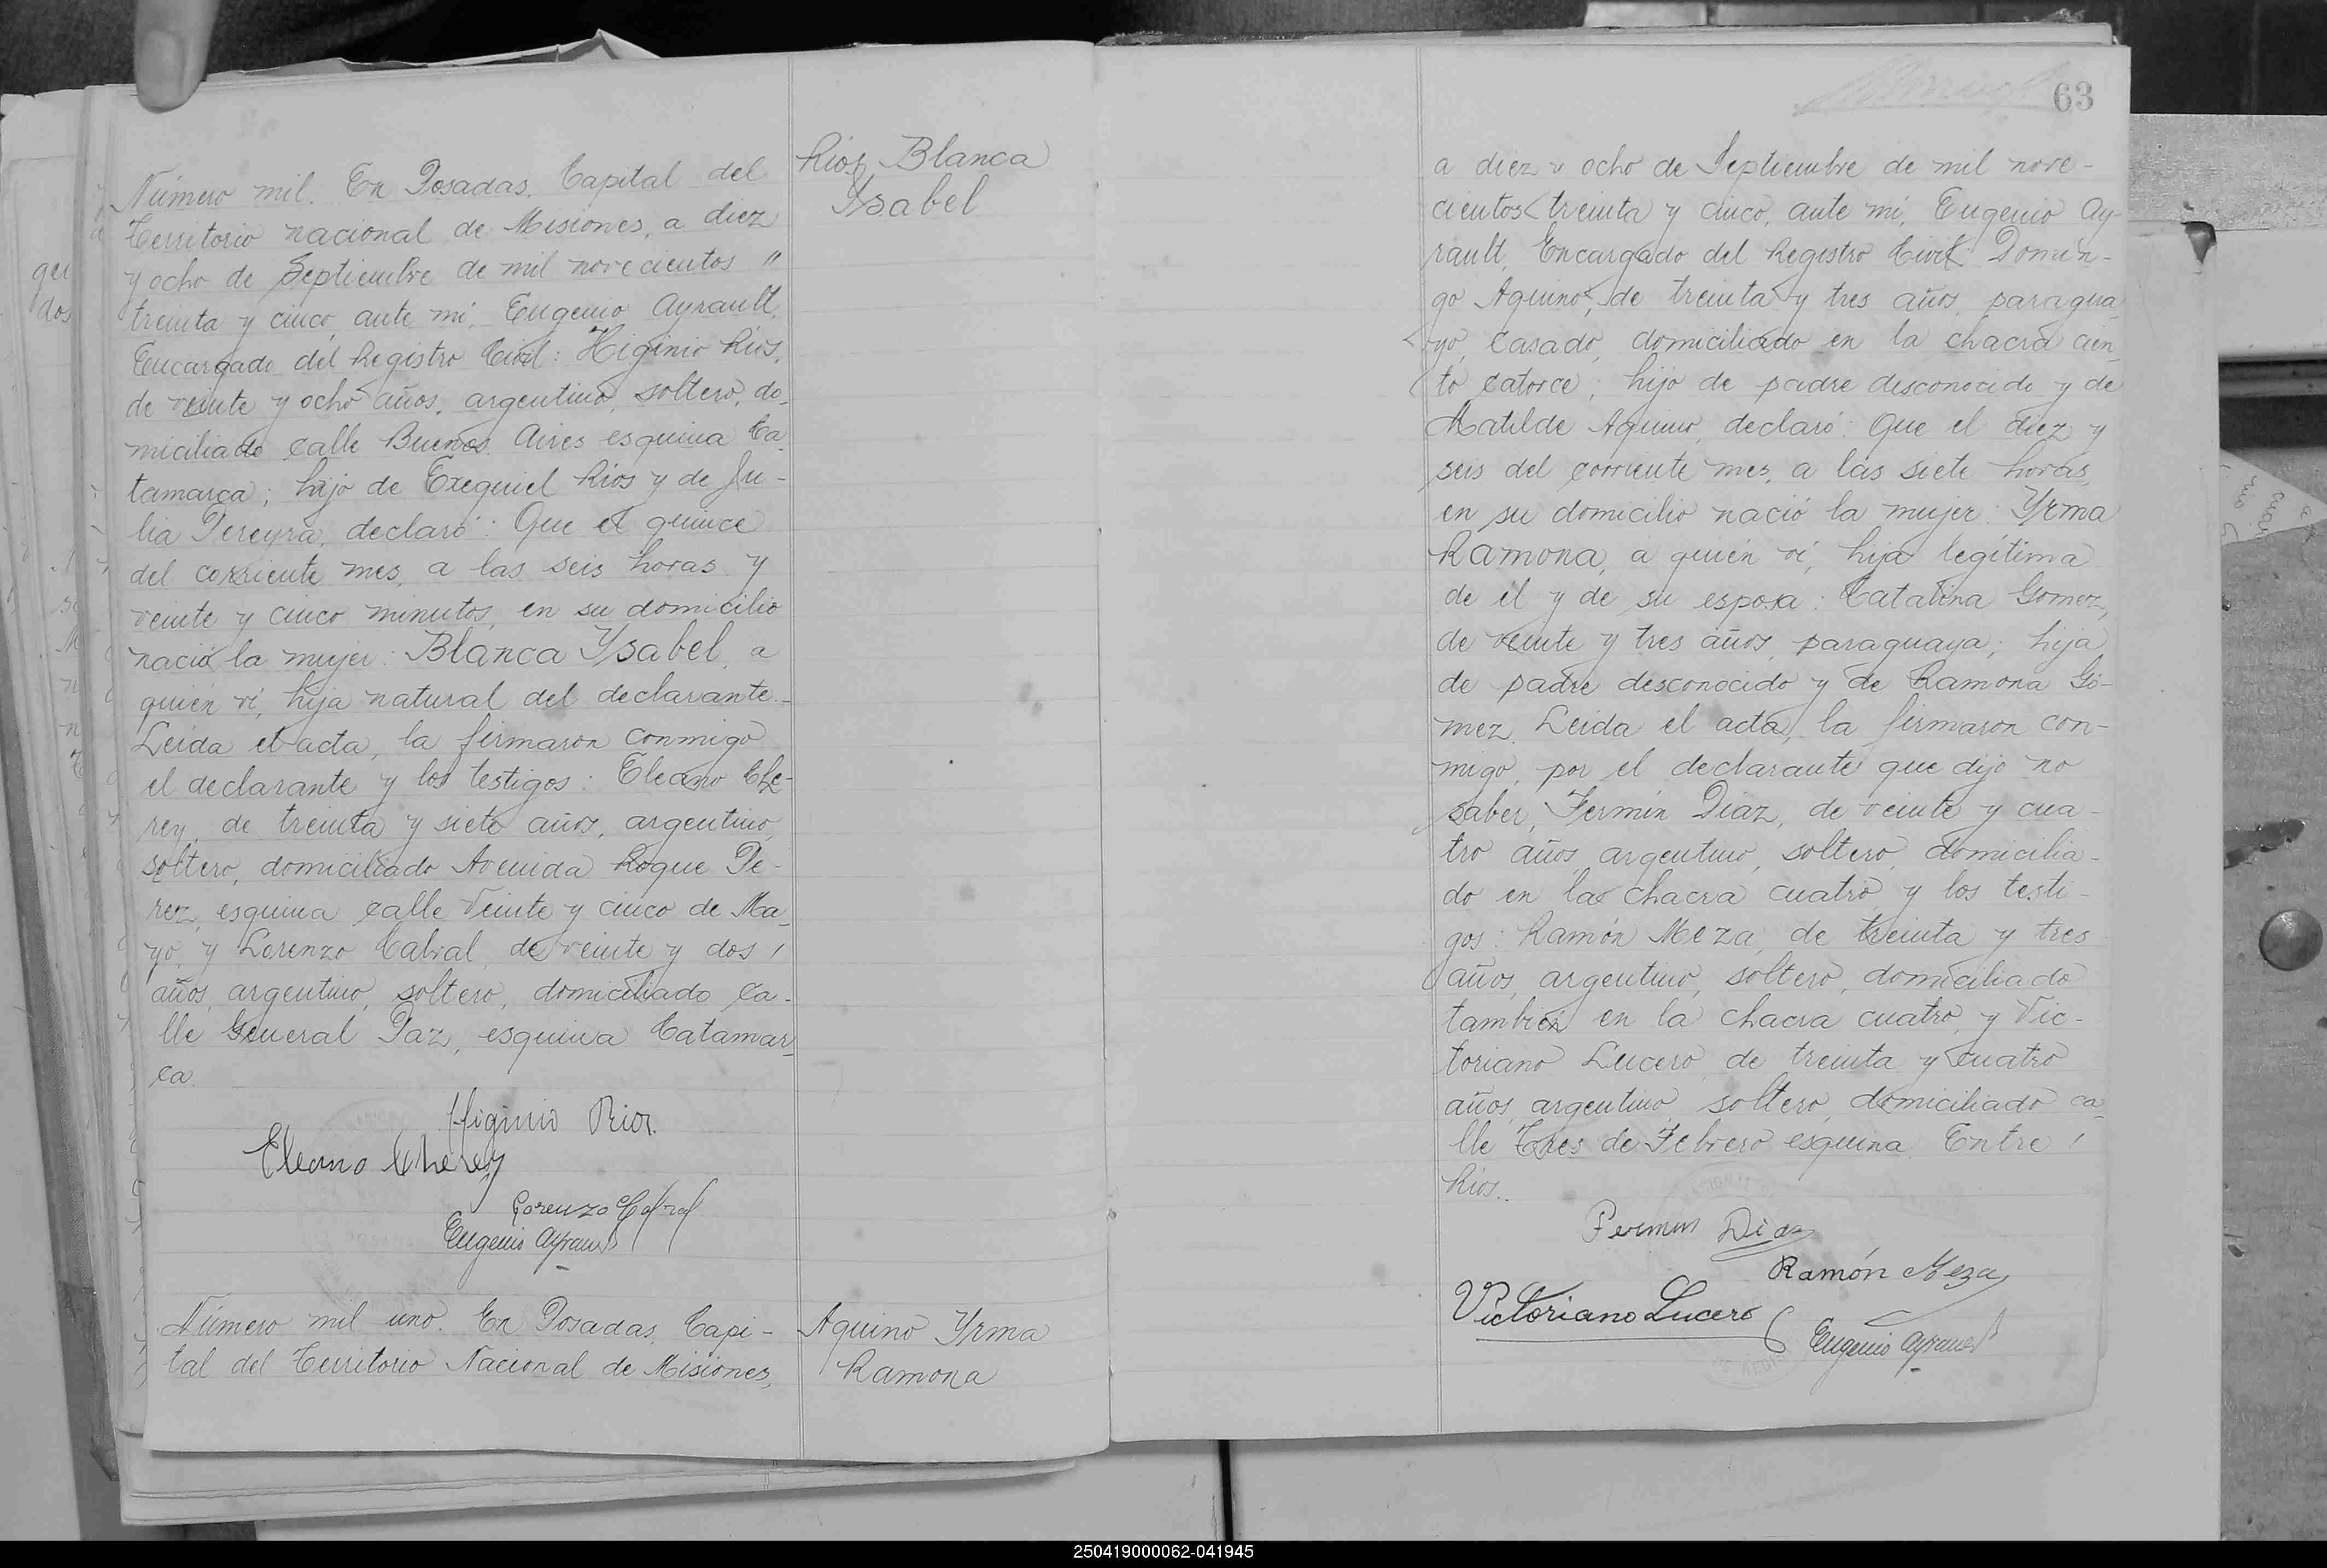 Rios, Blanca
Ysabel
Número mil. En Posadas. Capital del
Territorio nacional de Misiones, a diez
y ocho de Septiembre de mil novecientos "
treinta y cinco, ante mí, Eugenio Ayrault,
Encargado del Registro Civil: Higinio Rios,
de veinte y ocho años, argentino, soltero, do-
miciliado calle Buenos Aires esquina Ca-
tamarca; hijo de Exequiel Rios y de Ju-
lia Pereyra, declaró: Que el quince
del corriente mes, a las seis horas y
veinte y cinco minutos, en su domicilio
nació la mujer: Blanca Ysabel, a
quién ví, hija natural del declarante.-
Leida el acta, la firmaron conmigo
el declarante y los testigos: Eleano Che-
rey, de treinta y siete años, argentino,
soltero, domiciliado Avenida Roque Pe-
rez, esquina calle Veinte y cinco de Ma-
yo, y Lorenzo Cabral, de veinte y dos
años, argentino, soltero, domiciliado ca-
lle General Paz, esquina Catamar-
ca.
Higinio Rios.
Eleano Cherey
Lorenzo Cabral
Eugenio Ayrault
Número mil uno. En Posadas, Capi-
tal del Territorio Nacional de Misiones,
Aquino Yrma
Ramona
63
a diez y ocho de Septiembre de mil nove-
cientos treinta y cinco, ante mí, Eugenio Ay-
rault, Encargado del Registro Civil: Domin-
go Aquino, de treinta y tres años, paragua-
yo, casado, domiciliado en la chacra cien-
to catorce; hijo de padre desconocido y de
Matilde Aquino, declaró: Que el diez y
seis del corriente mes, a las siete horas,
en su domicilio nació la mujer: Yrma
Ramona, a quién ví, hija legítima
de él y de su esposa: Catalina Gomez,
de veinte y tres años, paraguaya; hija
de padre desconocido y de Ramona Gó-
mez. Leida el acta, la firmaron con-
migo, por el declarante que dijo no
saber, Fermín Diaz, de veinte y cua-
tro años, argentino, soltero, domicilia-
do en la chacra cuatro, y los testi-
gos: Ramón Meza, de treinta y tres
años, argentino, soltero, domiciliado
también en la chacra cuatro, y Vic-
toriano Lucero, de treinta y cuatro
años, argentino, soltero, domiciliado ca-
lle Tres de Febrero esquina Entre
Rios..
Fermin Diaz
Ramón Meza
Victoriano Lucero
Eugenio Ayrault
250419000062-041945